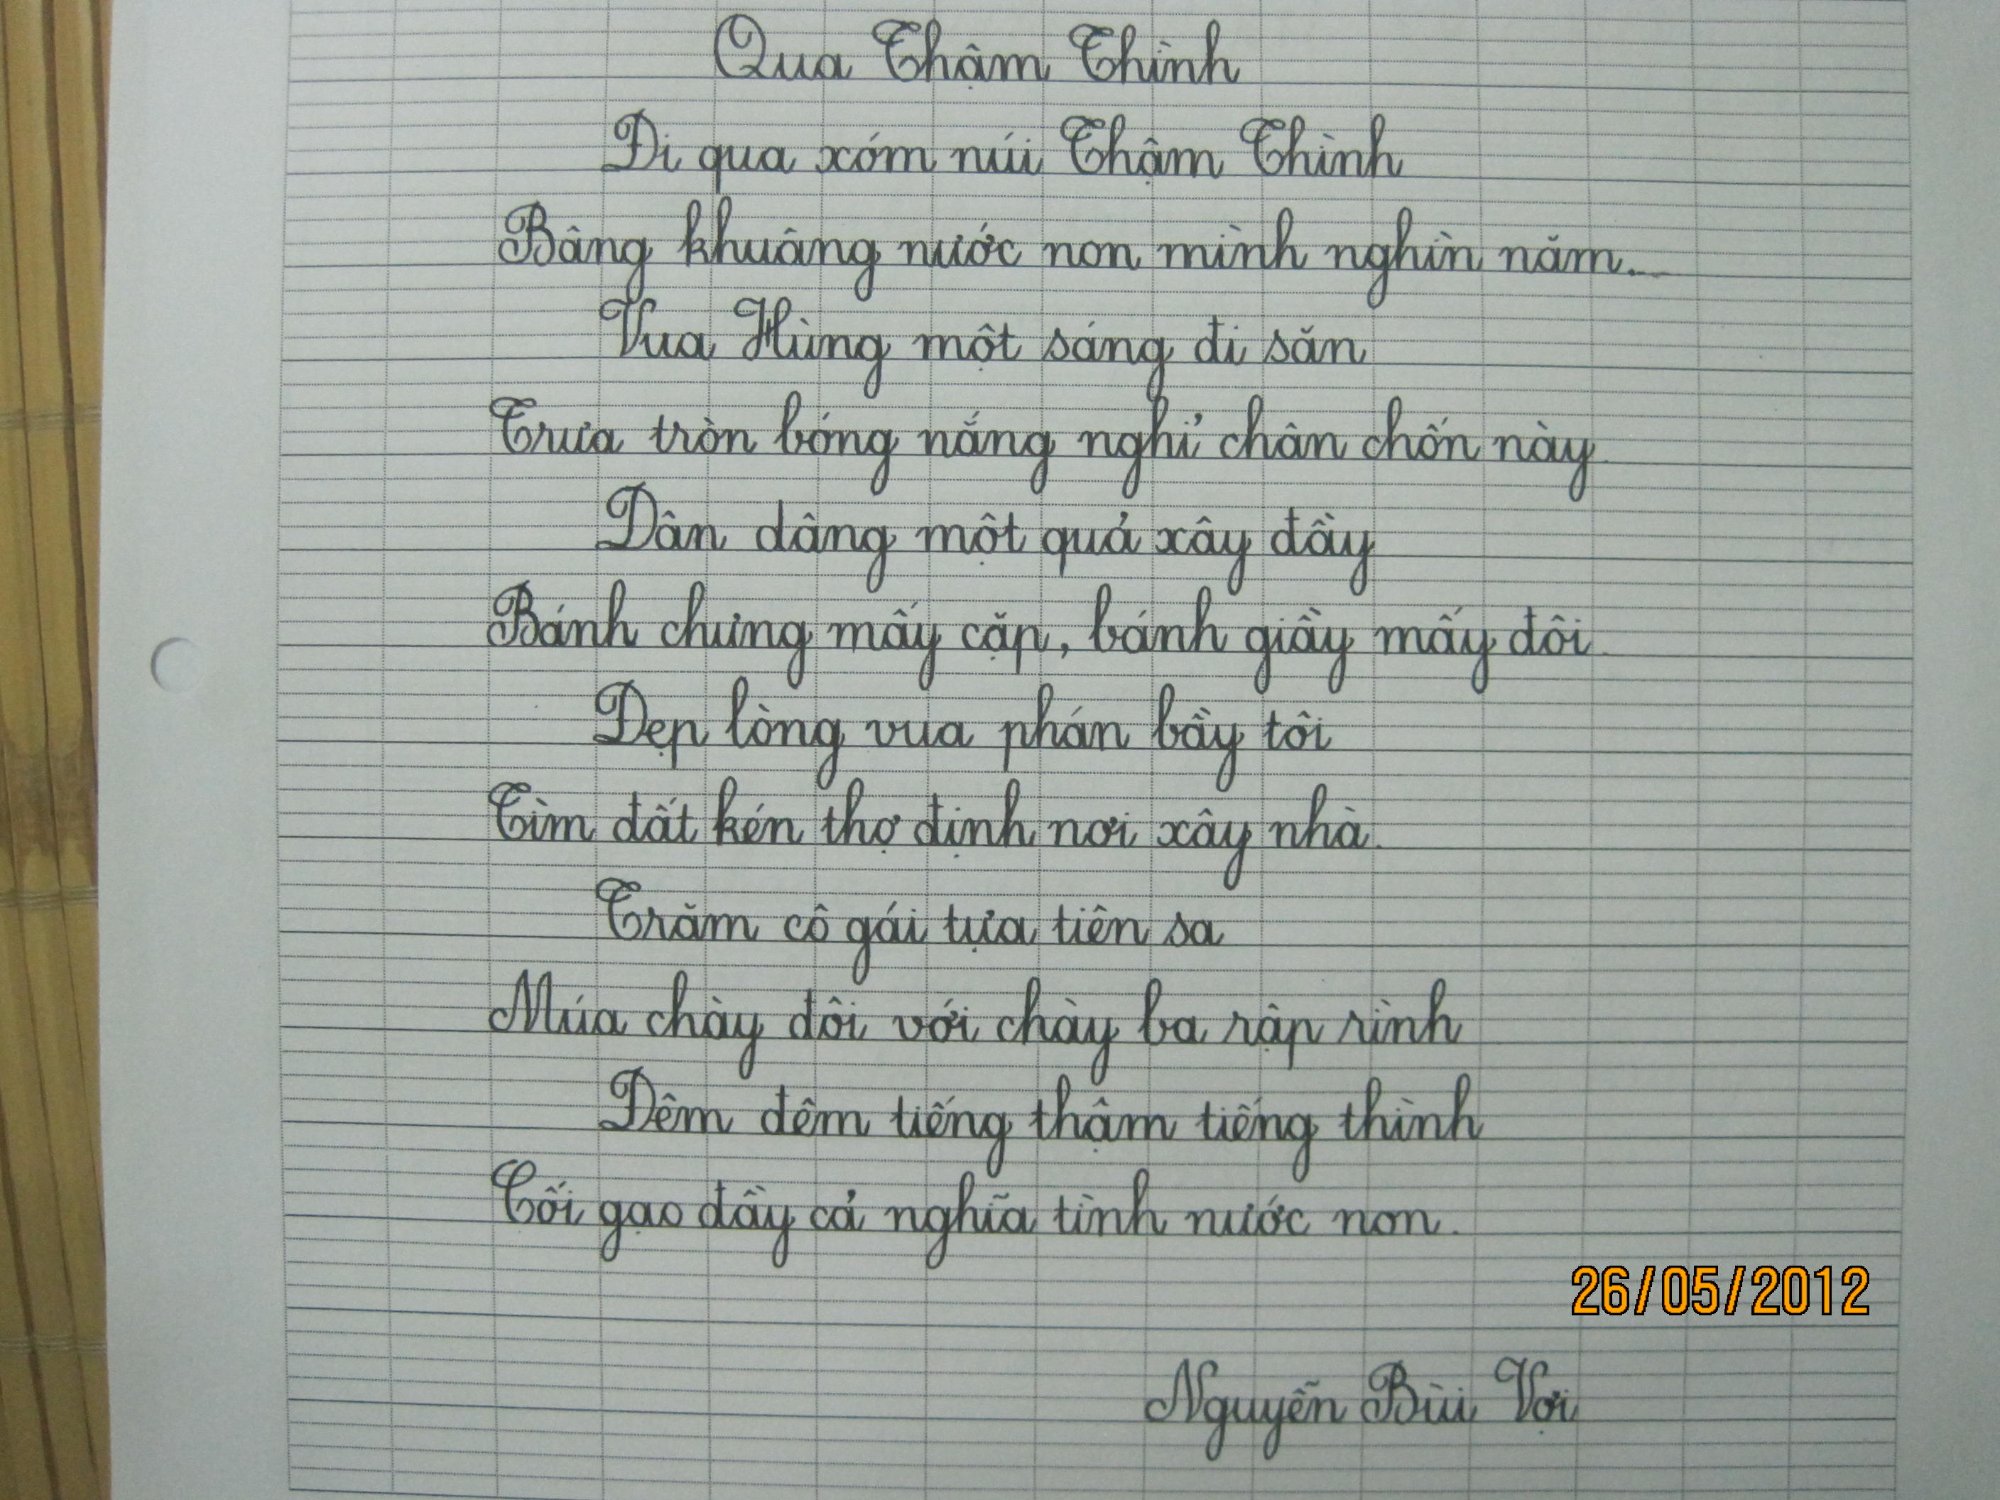 Qua Thậm Thình
Đi qua xóm núi Thậm Thình
Bâng khuâng nước non mình nghìn năm...
Vua Hùng một sáng đi săn
Trưa tròn bóng nắng nghỉ chân chốn này
Dân dâng một quả xây đầy
Bánh chưng mấy cặp, bánh giầy mấy đôi
Đẹp lòng vua phán bầy tôi
Tìm đất kén thợ định nơi xây nhà.
Trăm cô gái tựa tiên sa
Múa chày đôi với chày ba rập rình
Đêm đêm tiếng thậm tiếng thình
Cối gạo đầy cả nghĩa tình nước non.
26/05/2012
Nguyễn Bùi Vợi